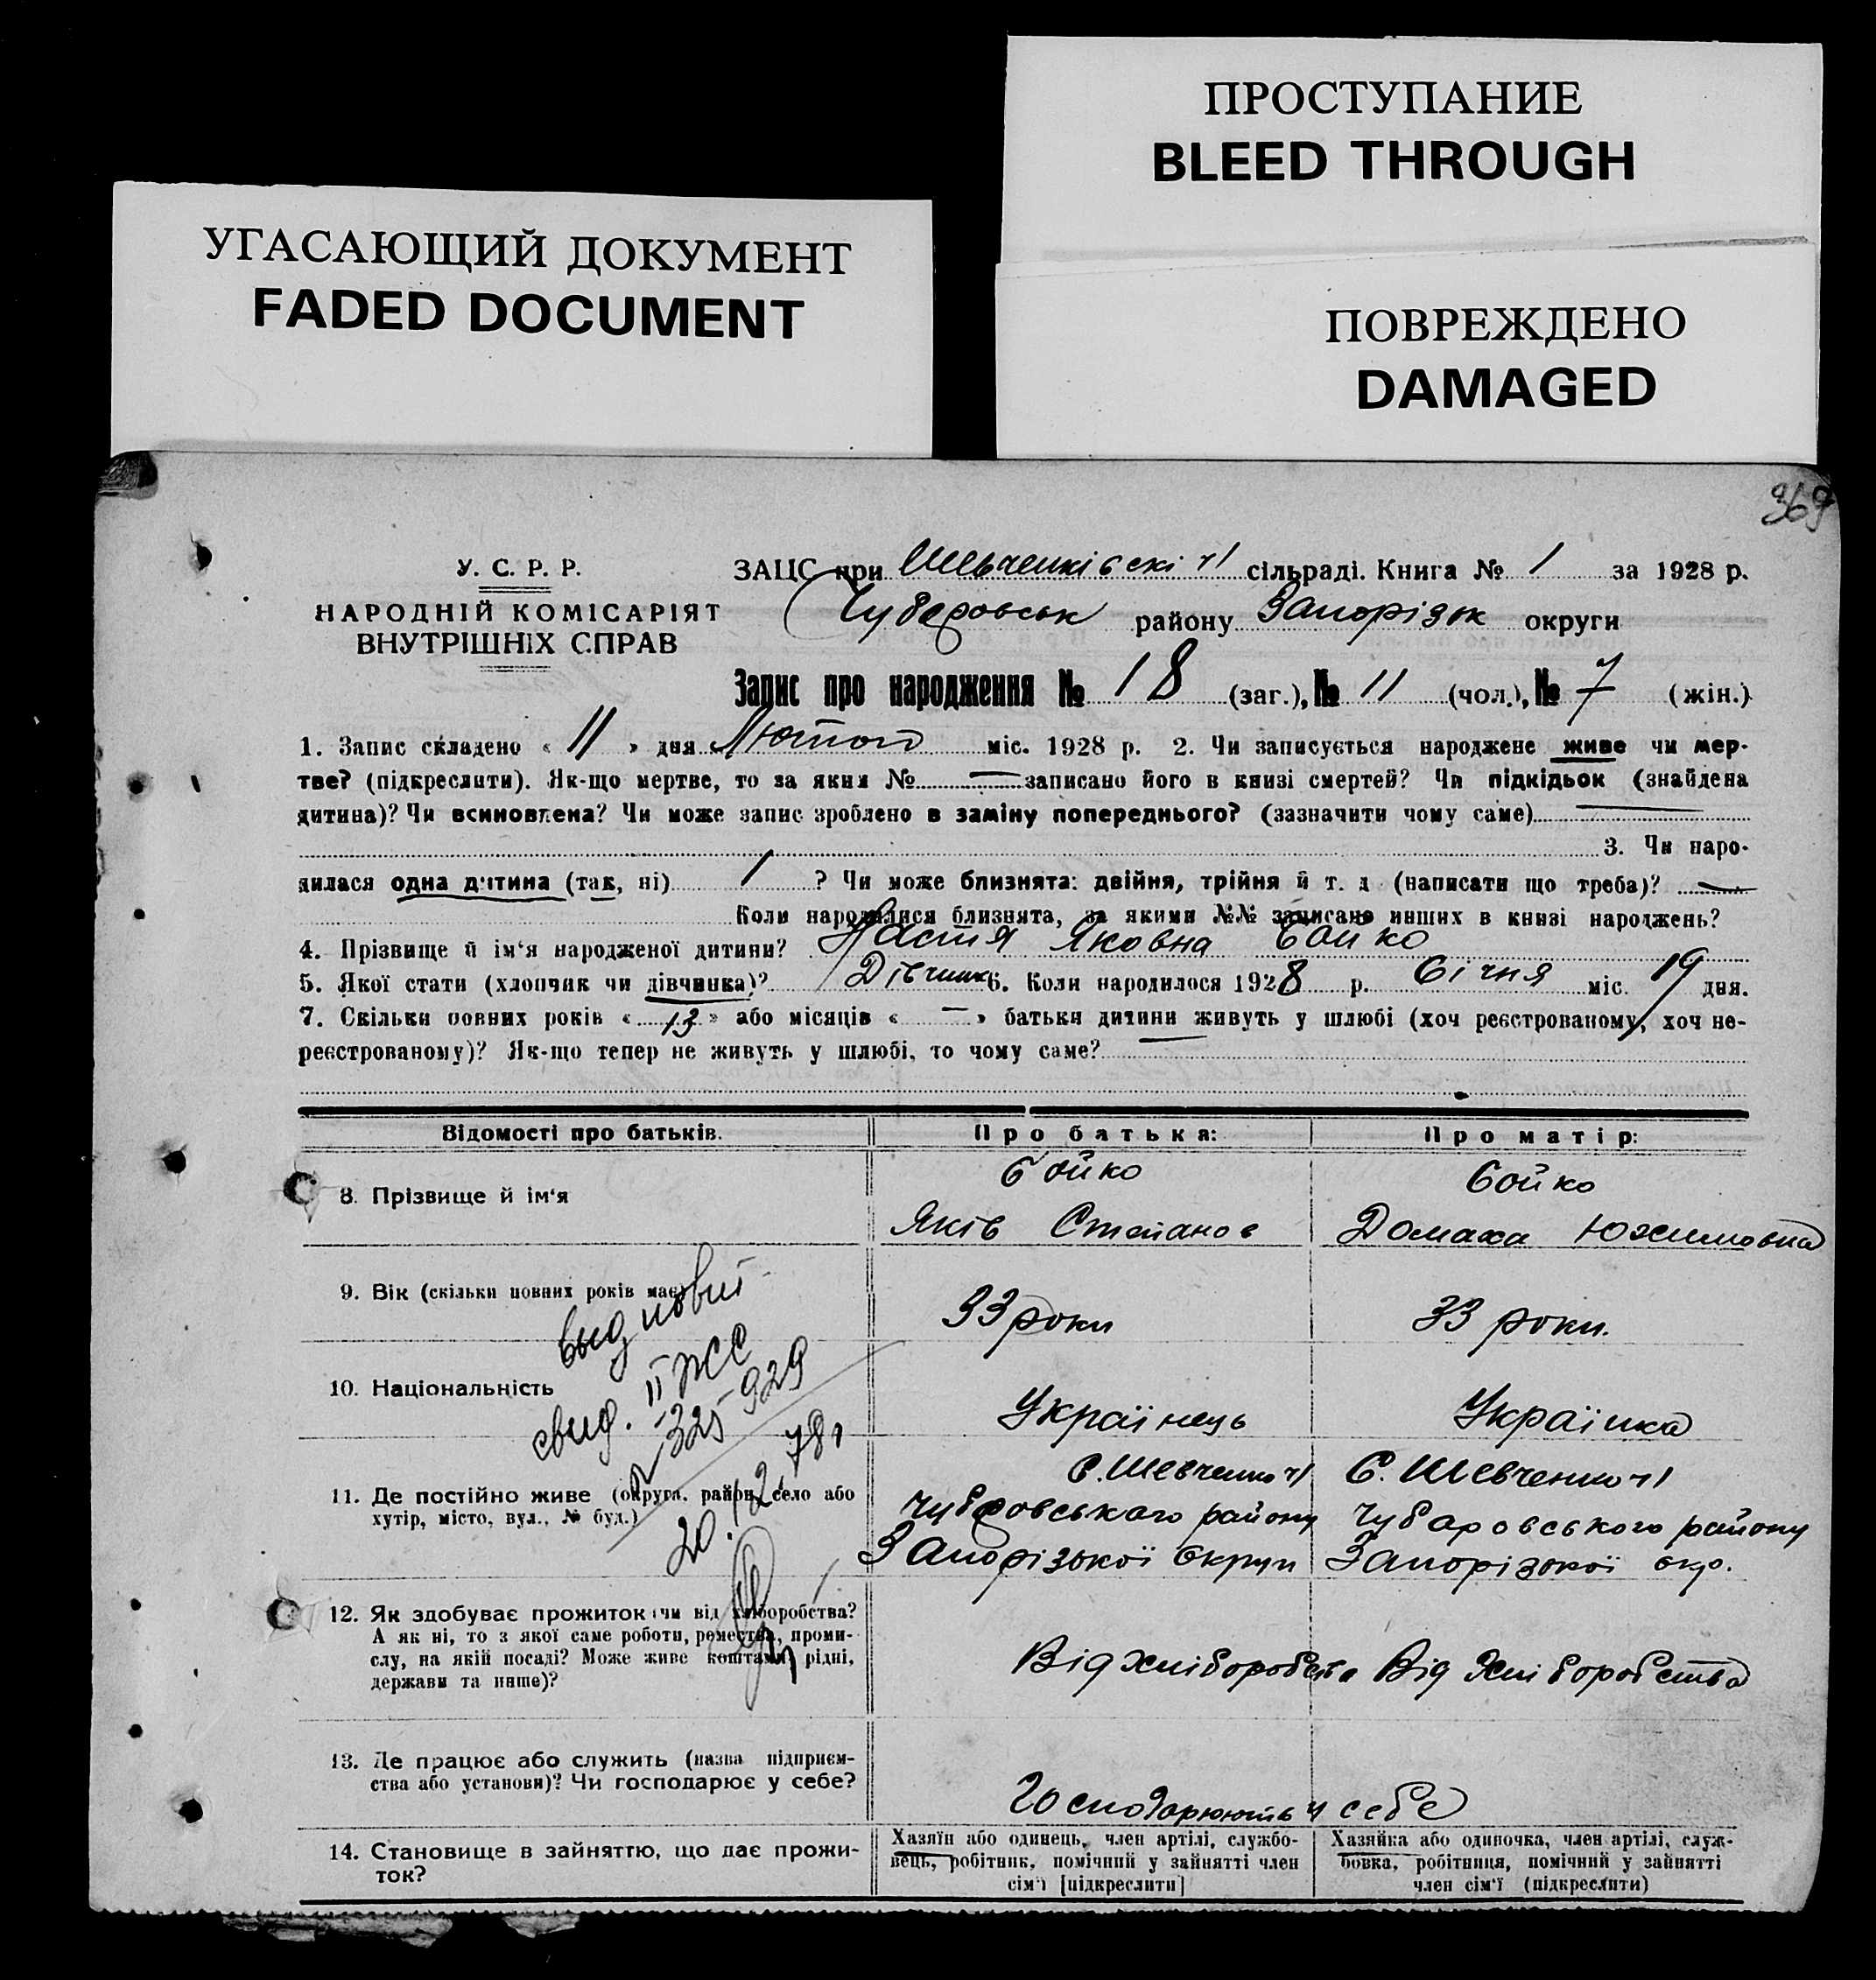 ПРОСТУПАНИЕ
BLEED THROUGH
УГАСАЮЩИЙ ДОКУМЕНТ
FADED DOCUMENT
ПОВРЕЖДЕНО
DAMAGED
369
У. С. Р. Р.
НАРОДНІЙ КОМІСАРІЯТ
ВНУТРІШНІХ СПРАВ
ЗАЦС при Шевченківскі ч1 сільраді. Книга № 1 за 1928 р.
Чубаровськ району Запорізьк округи
Запис про народження № 18 (заг.), № 11 (чол.), № 7 (жін.)
1. Запис складено « 11 » дня Лютого міс. 1928 р. 2. Чи записується народжене живе чи мер-
тве? (підкреслити). Як-що мертве, то за яким № — записано його в книзі смертей? Чи підкідьок (знайдена
дитина)? Чи всиновлена? Чи може запис зроблено в заміну попереднього? (зазначити чому саме) —
3. Чи наро-
дилася одна дитина (так, ні) 1 ? Чи може близнята: двійня, трійня й т. д (написати що треба)? —
Коли народилися близнята, за якими №№ записано инших в книзі народжень?
4. Прізвище й ім'я народженої дитини? Настя Яковна Бойко
5. Якої стати (хлопчик чи дівчинка)? Дівчинк 6. Коли народилося 1928 р. Січня міс. 19 дня.
7. Скільки повних років « 13 » або місяців « — » батьки дитини живуть у шлюбі (хоч реєстрованому, хоч не-
реєстрованому)? Як-що тепер не живуть у шлюбі, то чому саме?
Відомості про батьків. Про батька: Про матір:
8. Прізвище й ім'я
Бойко
Яків Степанов
Бойко
Домаха Юхимовна
9. Вік (скільки повних років має)
33 роки
33 роки.
10. Національність
Українець
Українка
11. Де постійно живе (округа, район, село або
хутір, місто, вул., № буд.)
С. Шевченко ч1
Чубаровського району
Запорізької Округи
С. Шевченко ч1
Чубаровського району
Запорізької окр.
12. Як здобуває прожиток (чи від хліборобства?
А як ні, то з якої саме роботи, ремества, проми-
слу, на якій посаді? Може живе коштами рідні,
держави та инше)?
Від хліборобства
Від хліборобства
13. Де працює або служить (назва підприєм-
ства або установи)? Чи господарює у себе?
Господарюють у себе
14. Становище в зайняттю, що дає прожи-
ток?
Хазяїн або одинець, член артілі, службо-
вець, робітник, помічний у зайнятті член
сім'ї [підкреслити]
Хазяйка або одиночка, член артілі, служ-
бовка, робітниця, помічний у зайнятті
член сім'ї (підкреслити)
выд новый
свид. II ЖС
№ 325929
20.12.78г